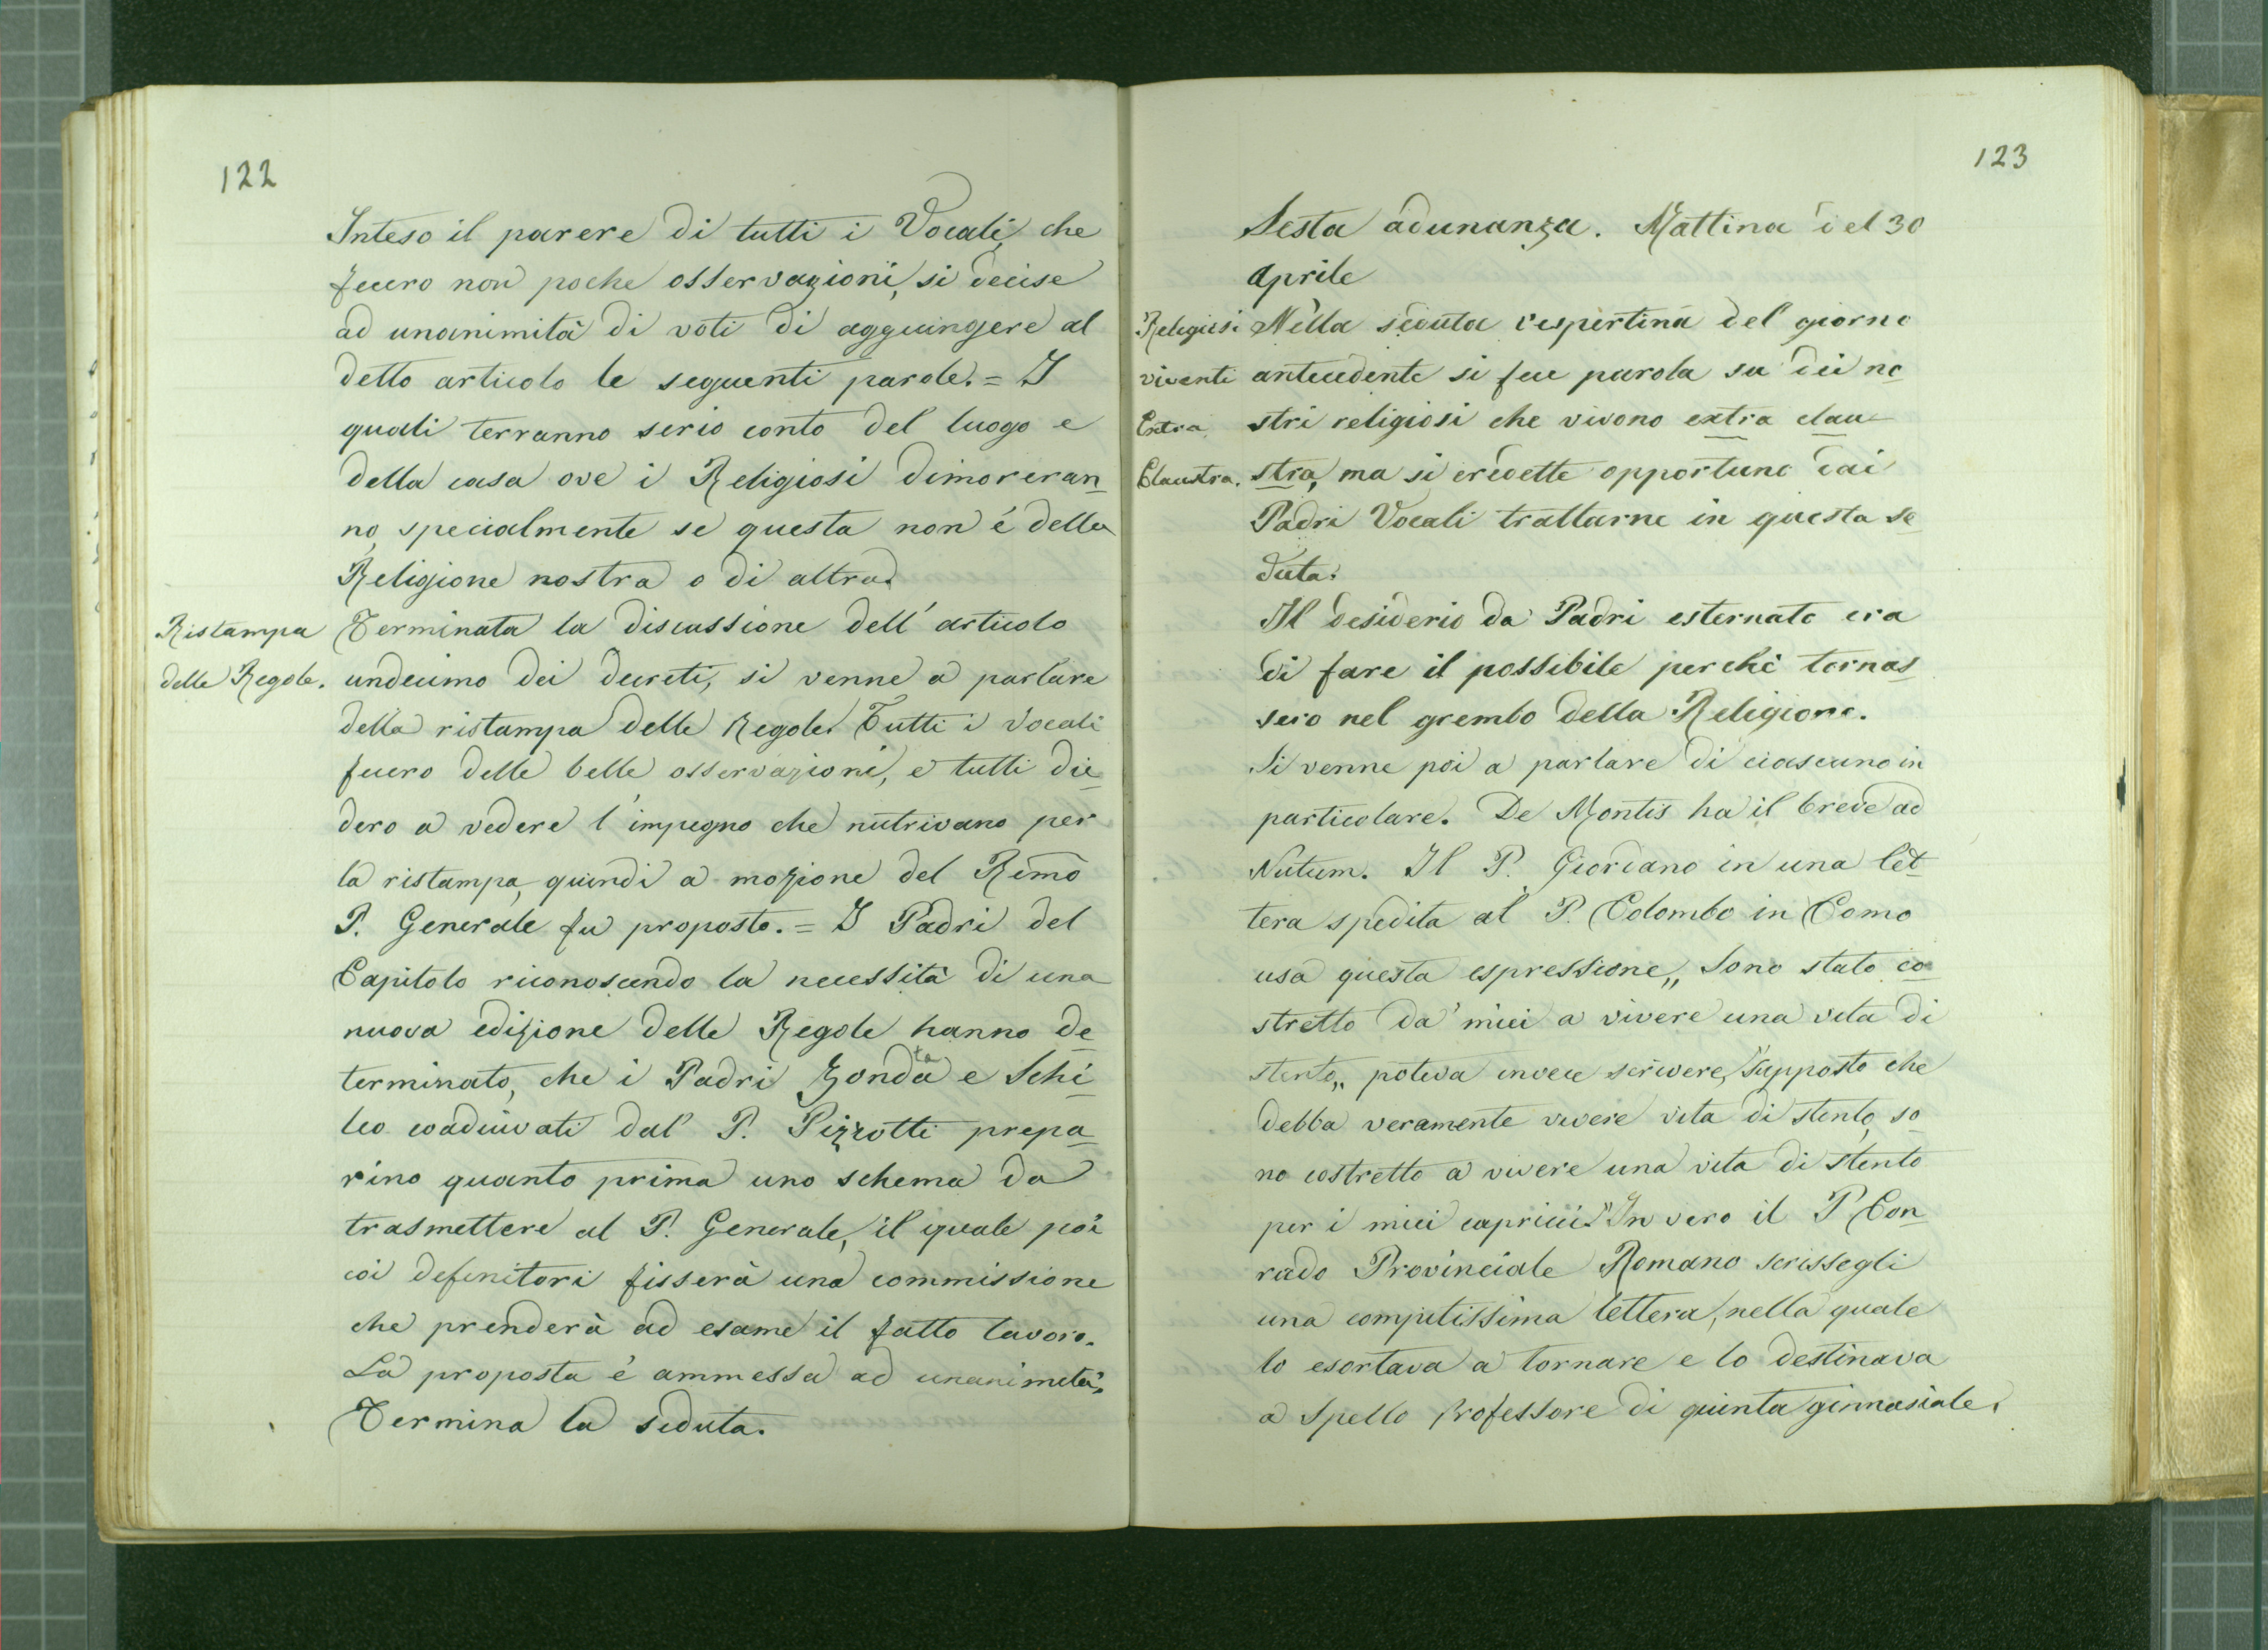 122
Inteso il parere di tutti i Vocali, che
fecero non poche osservazioni, si decise
ad unanimità di voti di aggiungere al
detto articolo le seguenti parole. = I
quali terranno serio conto del luogo e
della casa ove i Religiosi dimoreran
no, specialmente se questa non é della
Religione nostra o di altra.
Ristampa
delle Regole.
Terminata la discussione dell' articolo
undecimo dei decreti, si venne a parlare
della ristampa delle Regole. Tutti i Vocali
fecero delle belle osservazioni, e tutti die
dero a vedere l'impegno che nutrivano per
la ristampa, quindi a mozione del Rimo
P. Generale fu proposto. = I Padri del
Capitolo riconoscendo la necessità di una
nuova edizione delle Regole hanno de
terminato, che i Padri Zonda ta e Schi
leo coadiuvati dal P. Pizzotti prepa
rino quanto prima uno schema da
trasmettere al P. Generale, il quale poi
coi definitori fisserà una commissione
che prenderà ad esame il fatto lavoro.
La proposta é ammessa ad unanimità.
Termina la seduta.
123
Sesta adunanza. Mattina del 30
Aprile
Religiosi
viventi
Extra
Claustra.
Nella seduta vespertina del giorno
antecedente si fece parola su dei no
stri religiosi che vivono extra clau
stra, ma si credette opportuno dai
Padri Vocali trattarne in questa se
duta.
Il desiderio da' Padri esternato era
di fare il possibile perchè tornas
sero nel grembo della Religione.
Si venne poi a parlare di ciascuno in
particolare. De Montis ha il breve ad
Nutum. Il P. Giordano in una let
tera spedita al P. Colombo in Como
usa questa espressione „ Sono stato co
stretto da' miei a vivere una vita di
stento „ poteva invece scrivere, "supposto che
debba veramente vivere vita di stento, so
no costretto a vivere una vita di stento
per i miei capricci." In vero il P Con
rado Provinciale Romano scrissegli
una compitissima lettera, nella quale
lo esortava a tornare e lo destinava
a Spello professore di quinta ginnasiale.